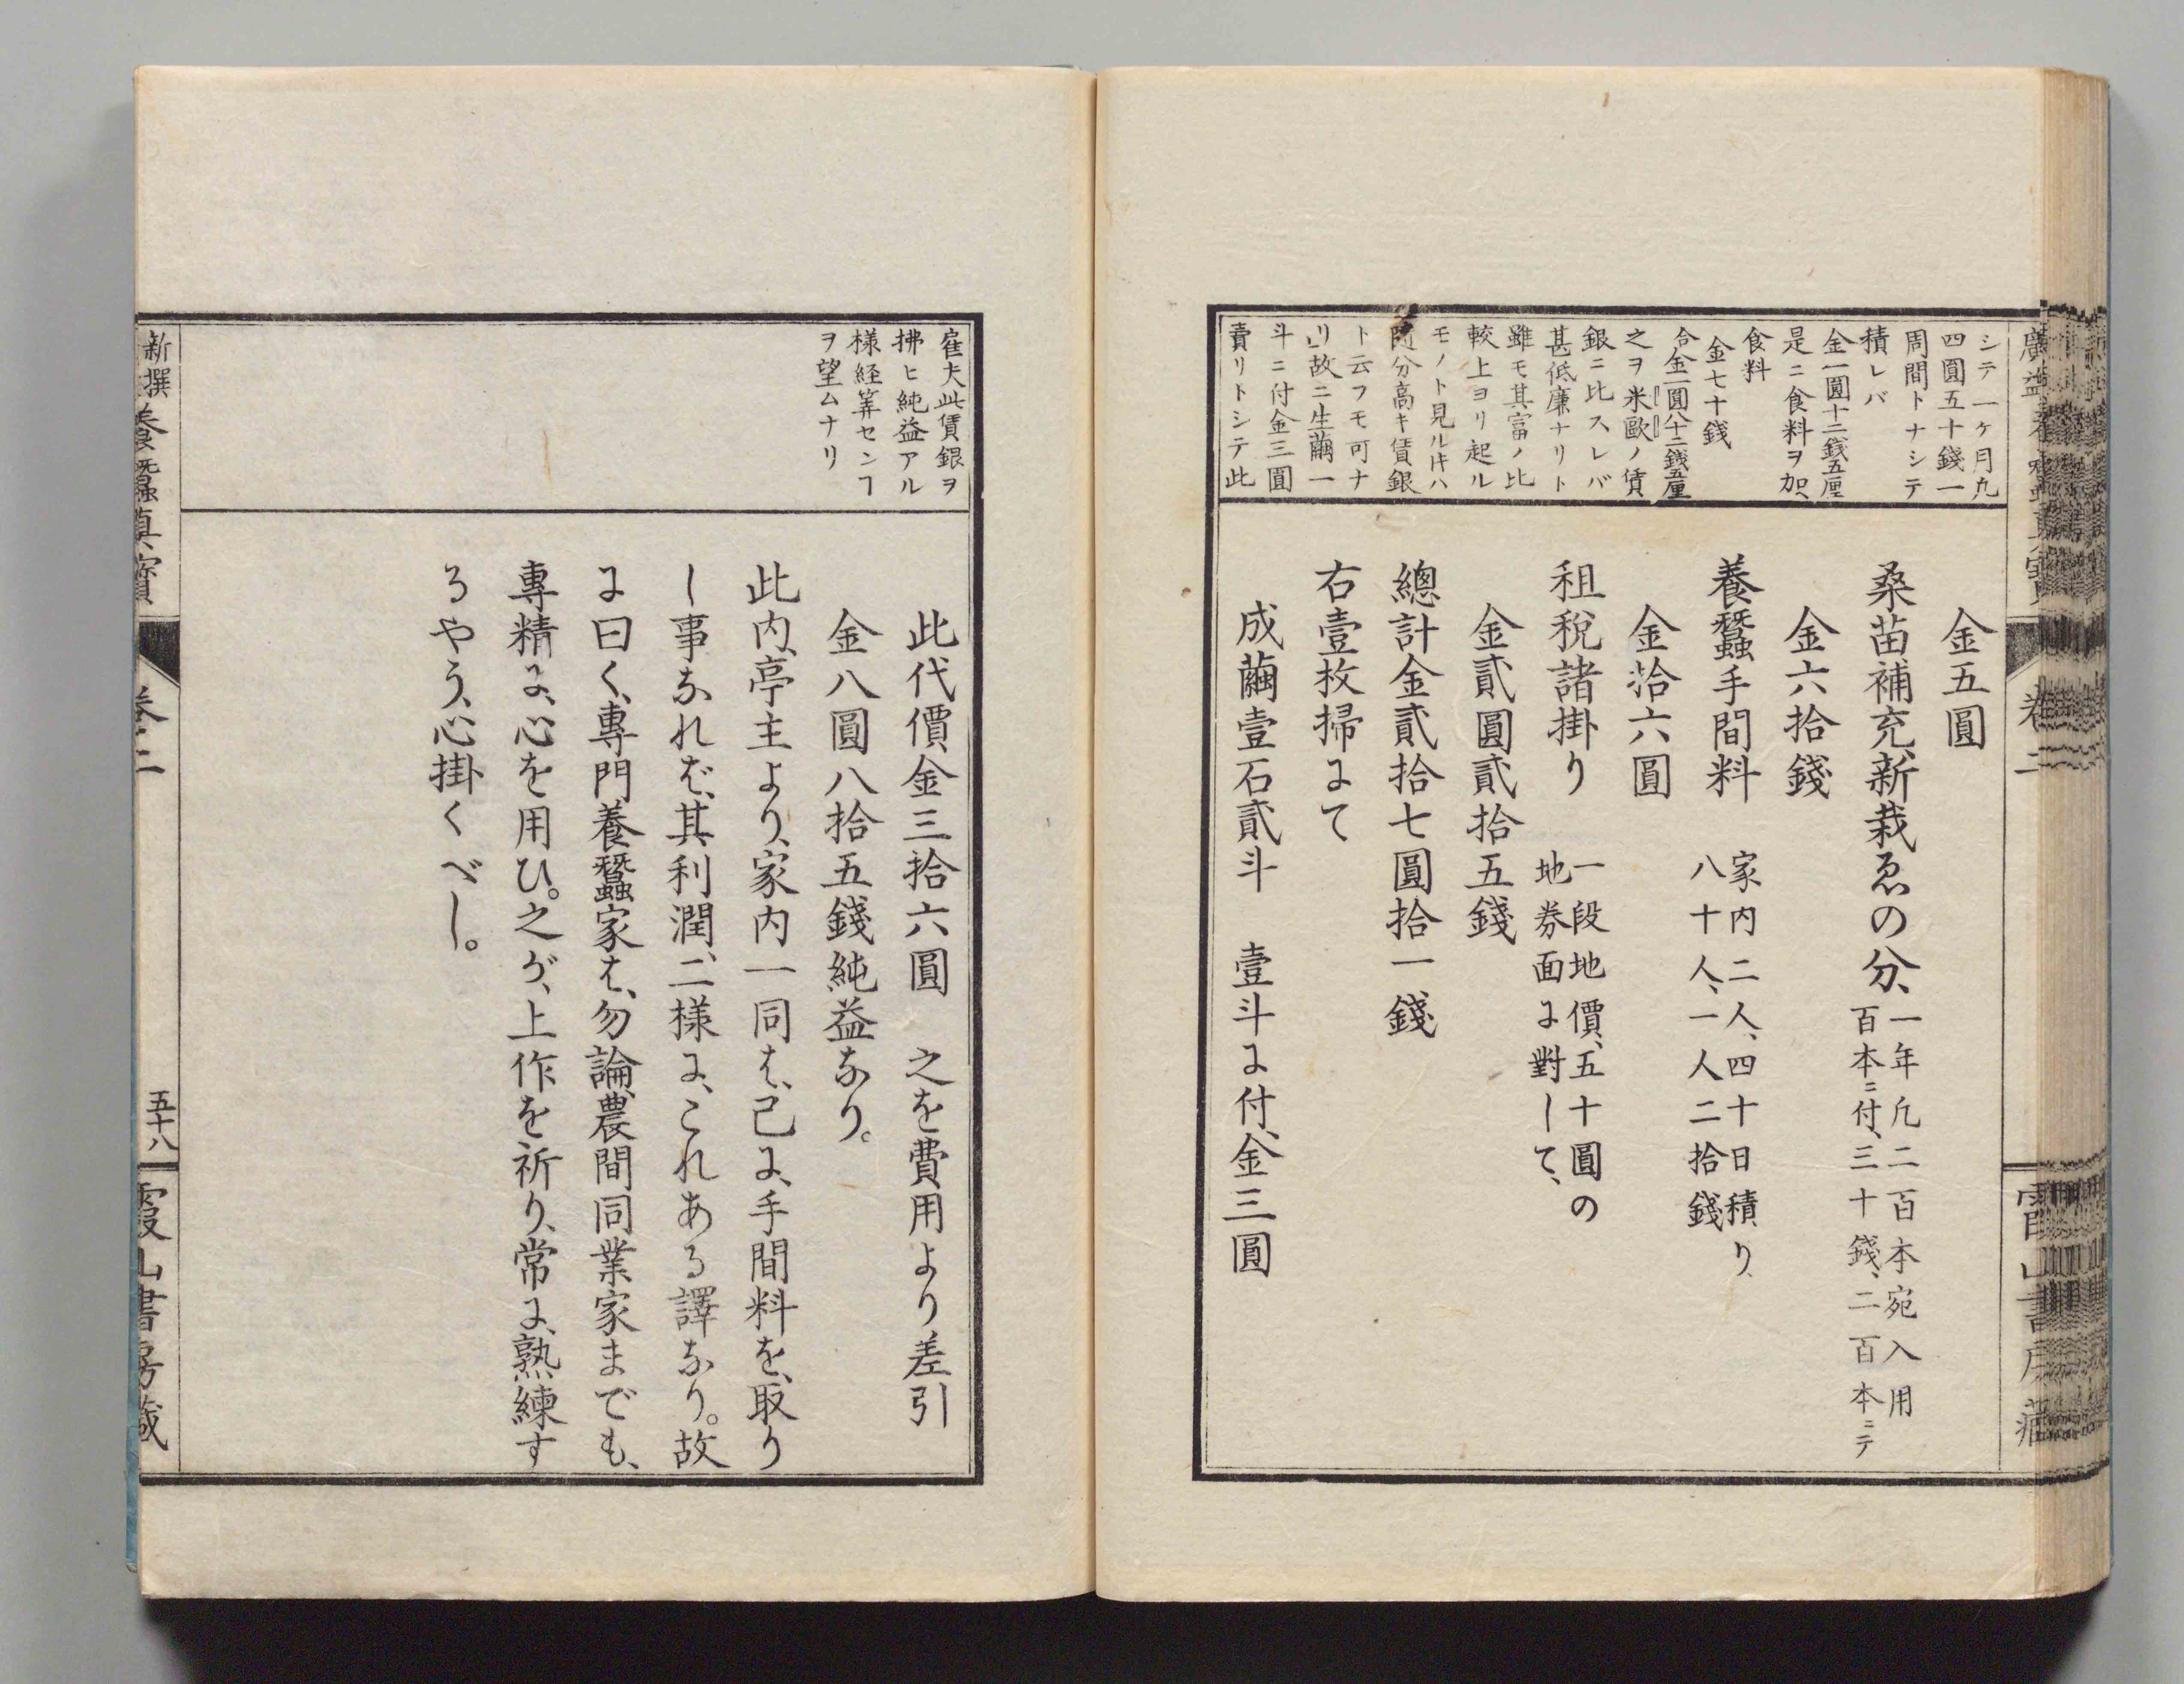 シテ一ケ月九
四圓五十錢一
周間トナシテ
積レバ
金一圓十二錢五厘
是ニ食料ヲ加
食料
金七十錢
合金一圓八十二錢五厘
之ヲ米歐ノ賃
銀ニ比スレバ
甚低廉ナリト
雖モ其富ノ比
較上ヨリ起ル
モノト見ル𪜈ハ
随分高キ賃銀
ト云フモ可ナ
リ故ニ生繭一
斗ニ付金三圓
賣リトシテ此
金五圓
桑苗補充、新栽ゑの分、
一年凡二百本宛入用
百本ニ付、三十錢、二百本ニテ
金六拾錢
養蠶手間料
家内二人、四十日積り、
八十人、一人二拾錢
金拾六圓
租税諸掛り
一段地價、五十圓の
地券面に對して、
金貳圓貳拾五錢
總計金貳拾七圓拾一錢
右壹枚掃にて
成繭壹石貳斗 壹斗に付、金三圓
雇夫此賃銀ヲ
拂ヒ純益アル
樣経筭センヿ
ヲ望ムナリ
此代價、金三拾六圓 之を費用より差引
金八圓八拾五錢純益なり。
此内、亭主より、家内一同は、已に、手間料を、取り
し事なれば、其利潤、二様に、これある譯なり。故
に曰く、專門養蠶家は、勿論、農間同業家までも、
專精に、心を用ひ。之が、上作を祈り、常に、熟練す
るやう、心掛くべし。
新撰養蠶真寳
卷二
五十八
霞山書房藏